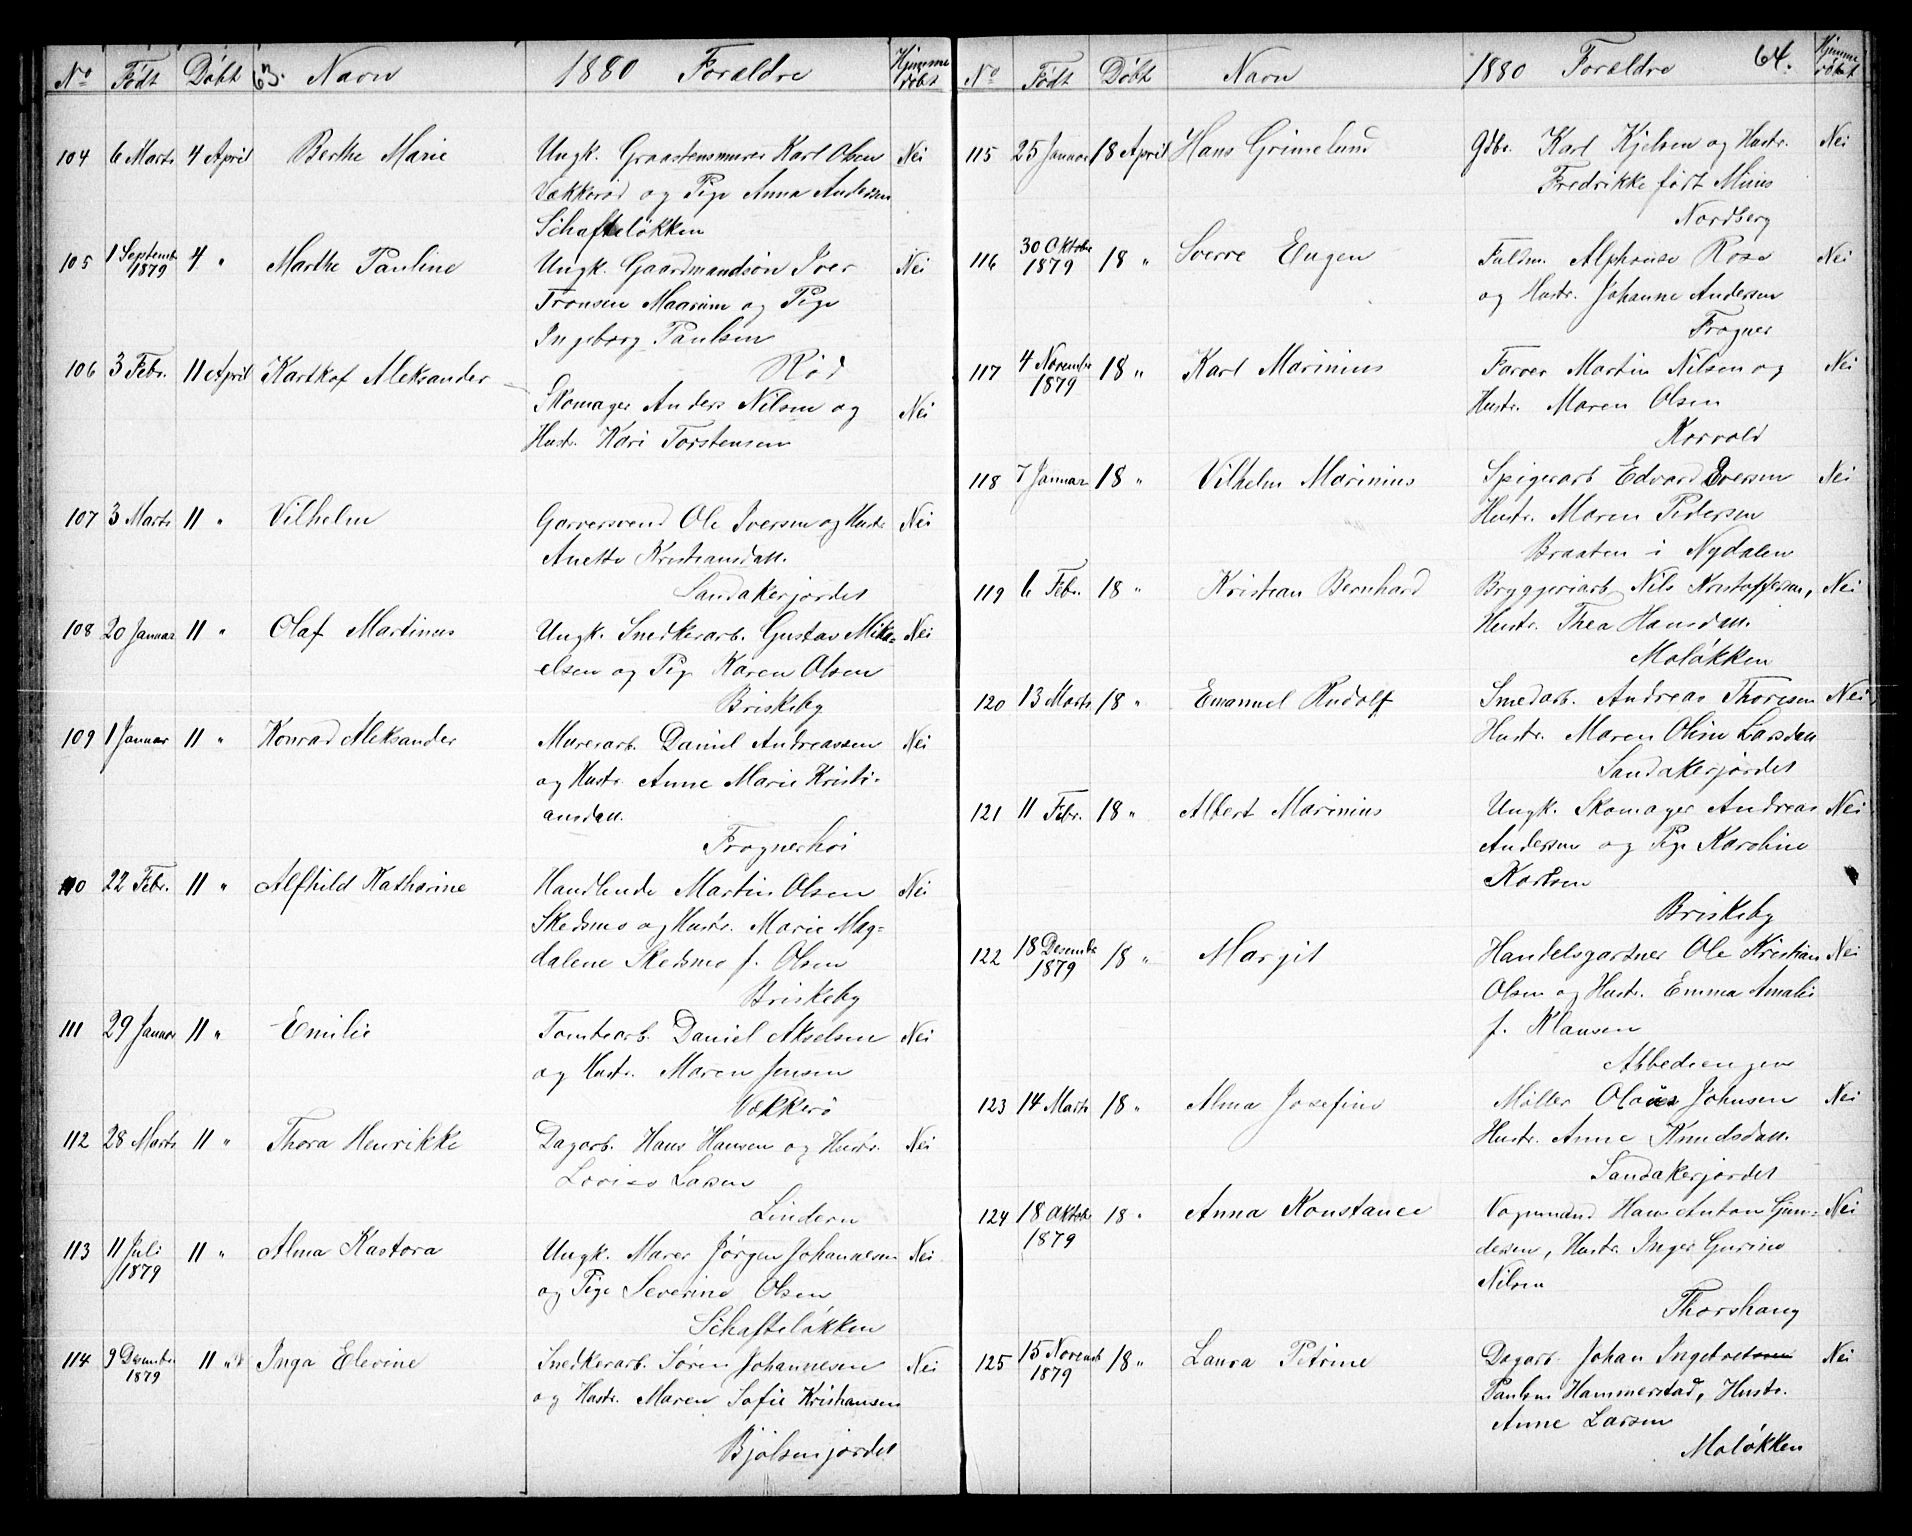 No Født Døbt 63. Navn 1880 Forældre Hjemmedøbt
104 6 Marts 4 April Berthe Marie Ungk. Graastensmurer Karl Olsen Nei
Vækkerød og Pige Anna Andersen
Schafteløkken
105 1 Septembr 1879 4 " Marthe Pauline Ungk. Gaardmandsøn Iver Nei
Tronsen Maarum og Pige
Ingeborg Paulsen
Rød
106 3 Febr. 11 April Karthof Aleksander
Skomager Anders Nilsen og Nei
Hustr. Kari Torstensen
107 3 Marts 11 " Vilhelm Garversvend Ole Iversen og Hustr. Nei
Anette Kristiansdatt.
Sandakerjordet
108 20 Januar 11 " Olaf Martinus Ungk. Snedkerarb. Gustav Mika- Nei
elsen og Pige Karen Olsen
Briskeby
109 1 Januar 11 " Konrad Aleksander Murerarb. Daniel Andreassen Nei
og Hustr. Anne Marie Kristi-
ansdatt.
Frognerhøi
110 22 Febr. 11 " Alfhild Katharine Handlende Martin Olsen Nei
Skedsmo og Hustr. Marie Mag-
dalene Skedsmo f. Olsen
Briskeby
111 29 Januar 11 " Emilie Tomtearb. Daniel Akselsen Nei
og Hustr. Maren Jensen
Vækkerø
112 28 Marts 11 " Thora Henrikke Dagarb. Hans Hansen og Hustr. Nei
Lovise Larsen
Lindern
113 11 Juli 1879 11 " Alma Kastora Ungk. Murer Jørgen Johannesen Nei
og Pige Severine Olsen
Schafteløkken
114 9 Desember 1879 11 " Inga Elevine Snedkerarb. Søren Johannesen Nei
og Hustr. Maren Sofie Kristiansen
Bjølsenjordet
No Født Døbt Navn 1880 Forældre 64. Hjemmedøbt
115 25 Januar 18 April Hans Grimelund Gdbr. Karl Kjelsen og Hustr. Nei
Fredrikke født Minis
Nordberg
116 30 Oktober 1879 18 " Sverre Eugen Fuldm. Alphonse Rose Nei
og Hustr. Johanne Andersen
Frogner
117 4 Novembr 1879 18 " Karl Marinius Farver Martin Nilsen og Nei
Hustr. Maren Olsen
Korvold
118 7 Januar 18 " Vilhelm Marinius Spigerarb. Edvard Iversen Nei
Hustr. Maren Pedersen
Braaten i Nydalen
119 6 Febr. 18 " Kristian Bernhard Bryggeriarb. Nils Kristoffersen, Nei
Hustr. Thea Hansdatt.
Moløkken
120 13 Marts 18 " Emanuel Rudolf Smedarb. Andreas Thoresen Nei
Hustr. Maren Oline Larsdatt
Sandakerjordet
121 11 Febr. 18 " Albert Marinius Ungk. Skomager Andreas Nei
Andersen og Pige Karoline
Karlsen
Briskeby
122 18 Desember 1879 18 " Margit Handelsgartner Ole Kristian Nei
Olsen og Hustr. Emma Amalie
f. Klausen
Abbediengen
123 14 Marts 18 " Alma Josefine Møller Olaus Johnsen Nei
Hustr. Anne Knudsdatt.
Sandakerjordet
124 18 Oktober 1879 18 " Anna Konstance Vognmand Hans Anton Gun- Nei
dersen, Hustr. Inger Gurine
Nilsen
Thorshaug
125 15 Novemb 1879 18 " Laura Petrine Dagarb. Johan Ingebretsen Nei
Paulsen Hammerstad, Hustr.
Anne Larsen
Moløkken